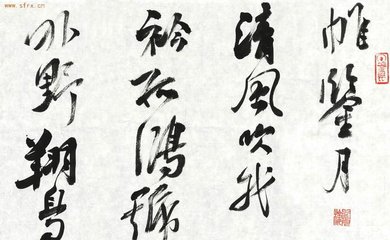 帷鑒月
清風吹我
衿孤鴻號
外野翔鳥
www.sfrx.cn